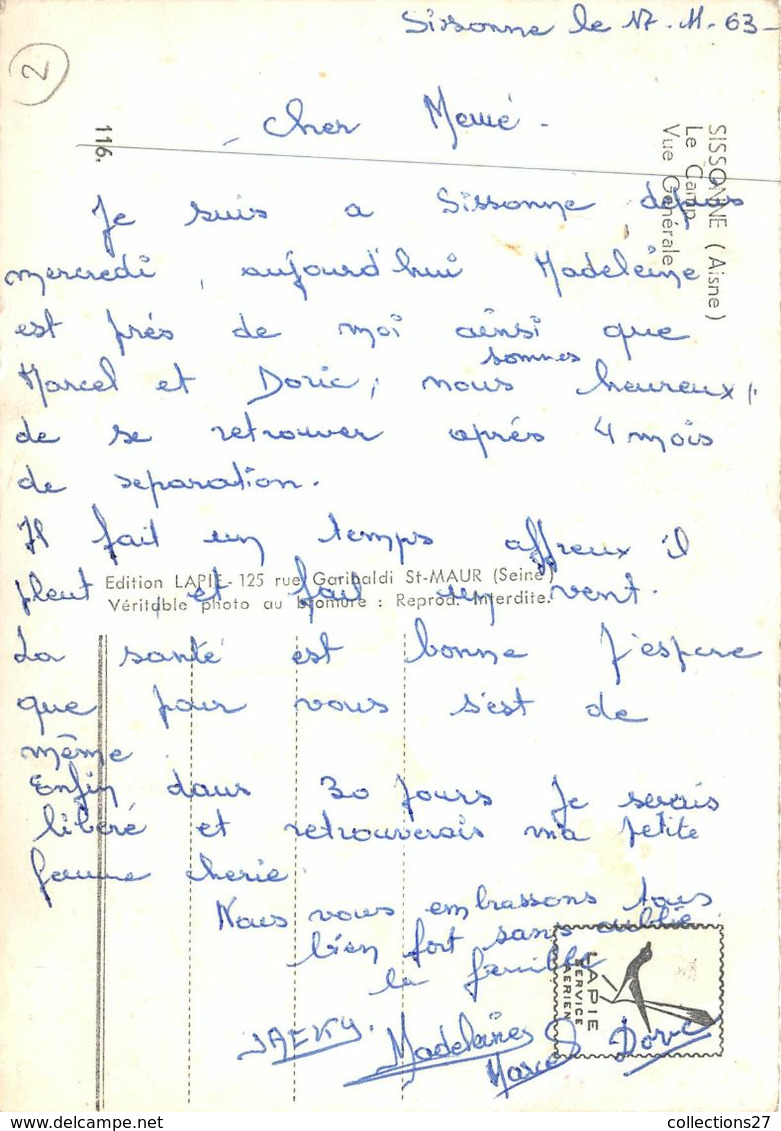 Sissonne le 17-11-63-
2
- Cher Memé -
116.
SISSONNE (Aisne)
Le Camp
Vue Générale
Je suis a Sissonne depuis
mercredi, aujourd'hui Madeleine
est prés de moi ainsi que
Marcel et Doric, nous sommes heureux,
de se retrouver aprés 4 mois
de separation.
Il fait un temps affreux il
pleut, et fait un vent.
Edition LAPIE - 125 rue Garibaldi St-MAUR (Seine)
Véritable photo au bromure : Reprod. Interdite.
La santé est bonne J'espere
que pour vous s'est de
même
Enfin dans 30 jours Je serais
libéré et retrouverais ma petite
femme cherie
Nous vous embrassons tous
bien fort sans oublié
la famille
LAPIE
SERVICE
AERIEN
JAEKY. Madeleines Marcel Doric
collections27